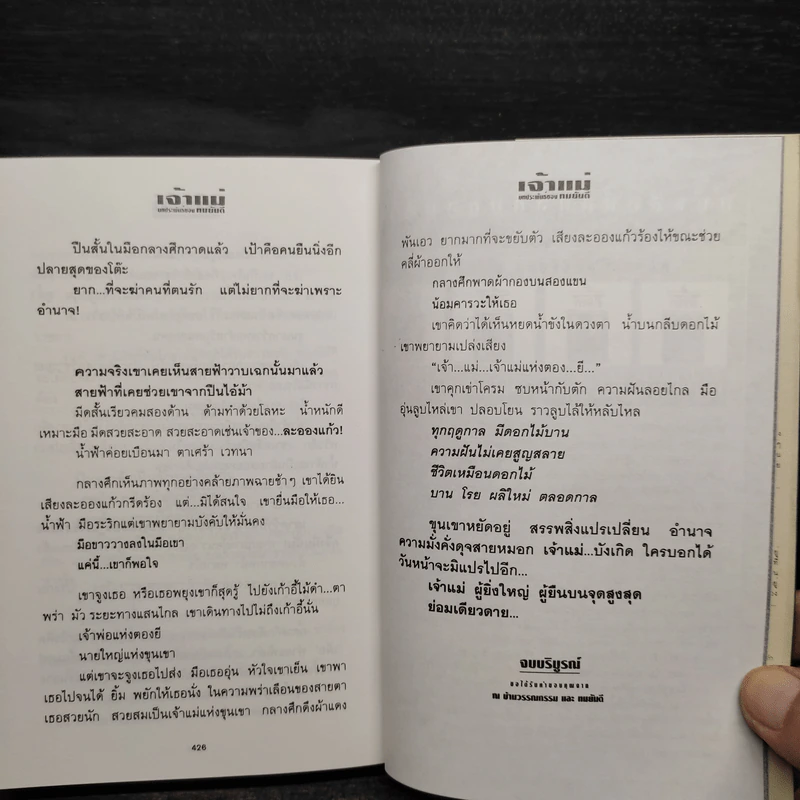 เจ้าแม่
บทประพันธ์ของ ทมยันตี
ปืนสั้นในมือกลางศึกวาดแล้ว เป้าคือคนยืนนิ่งอีก
ปลายสุดของโต๊ะ
ยาก...ที่จะฆ่าคนที่ตนรัก แต่ไม่ยากที่จะฆ่าเพราะ
อำนาจ!
ความจริงเขาเคยเห็นสายฟ้าวาบเฉกนั้นมาแล้ว
สายฟ้าที่เคยช่วยเขาจากปืนไอ้ม้า
มีดสั้นเรียวคมสองด้าน ด้ามทำด้วยโลหะ น้ำหนักดี
เหมาะมือ มีดสวยสะอาด สวยสะอาดเช่นเจ้าของ...ละอองแก้ว!
น้ำฟ้าค่อยเบือนมา ตาเศร้า เวทนา
กลางศึกเห็นภาพทุกอย่างคล้ายภาพฉายช้าๆ เขาได้ยิน
เสียงละอองแก้วกรีดร้อง แต่...มิได้สนใจ เขายื่นมือให้เธอ...
น้ำฟ้า มือระริกแต่เขาพยายามบังคับให้มั่นคง
มือขาววางลงในมือเขา
แค่นี้...เขาก็พอใจ
เขาจูงเธอ หรือเธอพยุงเขาก็สุดรู้ ไปยังเก้าอี้ไม้ดำ...ตา
พร่า มัว ระยะทางแสนไกล เขาเดินทางไปไม่ถึงเก้าอี้นั่น
เจ้าพ่อแห่งตองยี
นายใหญ่แห่งขุนเขา
เขาจะจูงเธอไปส่ง มือเธออุ่น หัวใจเขาเย็น เขาพา
เธอไปจนได้ ยิ้ม พยักให้เธอนั่ง ในความพร่าเลือนของสายตา
เธอสวยนัก สวยสมเป็นเจ้าแม่แห่งขุนเขา กลางศึกดึงผ้าแดง
426
เจ้าแม่
บทประพันธ์ของ ทมยันตี
พันเอว ยากมากที่จะขยับตัว เสียงละอองแก้วร้องไห้ขณะช่วย
คลี่ผ้าออกให้
กลางศึกพาดผ้ากองบนสองแขน
น้อมคารวะให้เธอ
เขาคิดว่าได้เห็นหยดน้ำขังในดวงตา น้ำบนกลีบดอกไม้
เขาพยายามเปล่งเสียง
“เจ้า...แม่...เจ้าแม่แห่งตอง...ยี...”
เขาคุกเข่าโครม ซบหน้ากับตัก ความฝันลอยไกล มือ
อุ่นลูบไหล่เขา ปลอบโยน ราวลูบไล้ให้หลับไหล
ทุกฤดูกาล มีดอกไม้บาน
ความฝันไม่เคยสูญสลาย
ชีวิตเหมือนดอกไม้
บาน โรย ผลิใหม่ ตลอดกาล
ขุนเขาหยัดอยู่ สรรพสิ่งแปรเปลี่ยน อำนาจ
ความมั่งคั่งดุจสายหมอก เจ้าแม่...บังเกิด ใครบอกได้
วันหน้าจะมิแปรไปอีก...
เจ้าแม่ ผู้ยิ่งใหญ่ ผู้ยืนบนจุดสูงสุด
ย่อมเดียวดาย...
จบบริบูรณ์
ขอได้รับคำขอบคุณจาก
ณ บ้านวรรณกรรม และ ทมยันตี